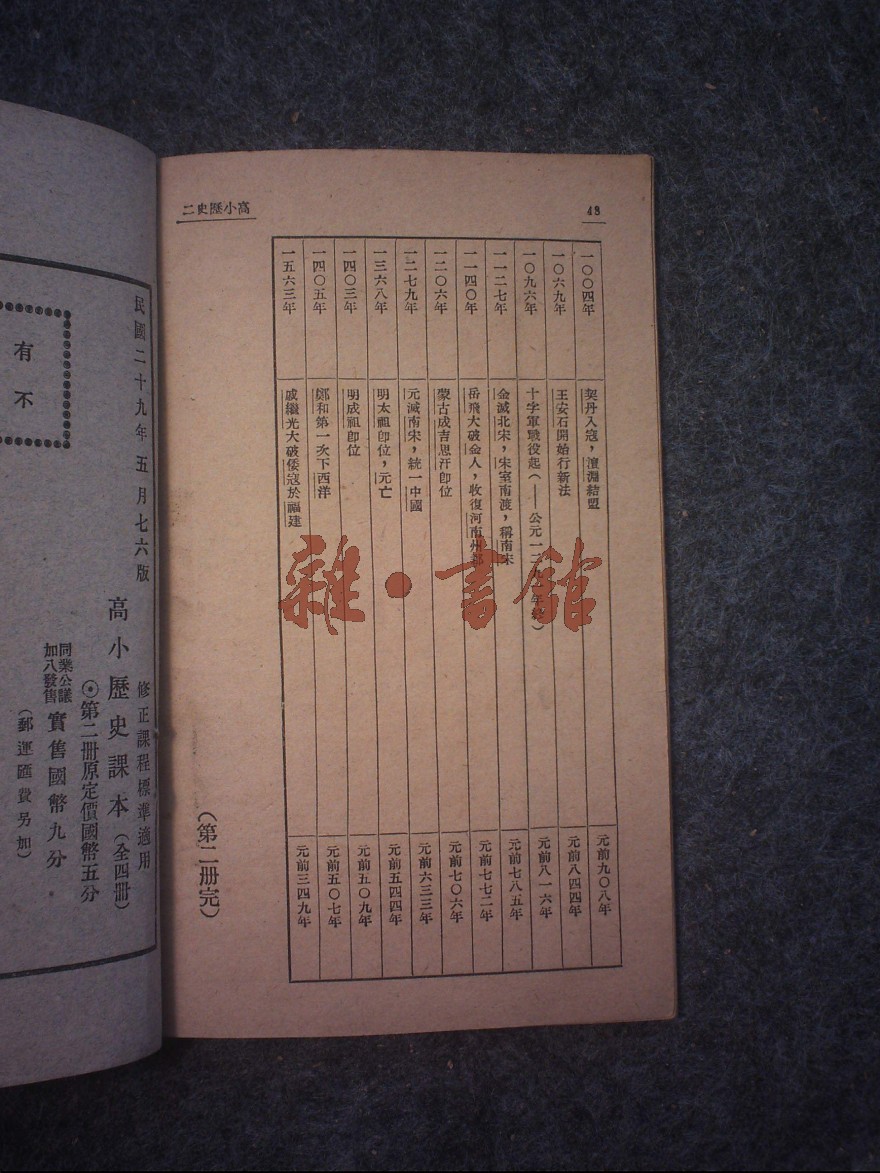 48
高小歷史二
一〇〇四年　契丹入寇，澶淵結盟　元前九〇八年
一〇六九年　王安石開始行新法　元前八四四年
一〇九六年　十字軍戰役起（——公元一二九一年終）　元前八一六年
一一二七年　金滅北宋，宋室南渡，稱南宋　元前七八五年
一一四〇年　岳飛大破金人，收復河南州郡　元前七七二年
一二〇六年　蒙古成吉思汗卽位　元前七〇六年
一二七九年　元滅南宋，統一中國　元前六三三年
一三六八年　明太祖卽位，元亡　元前五四四年
一四〇三年　明成祖卽位　元前五〇九年
一四〇五年　鄭和第一次下西洋　元前五〇七年
一五六三年　戚繼光大破倭寇於福建　元前三四九年
（第二册完）
雜·書館
民國二十九年五月七六版
修正課程標準適用
高小歷史課本（全四册）
⊙第二册原定價國幣五分
同業公議
加八發售
實售國幣九分
（郵運匯費另加）
有
不